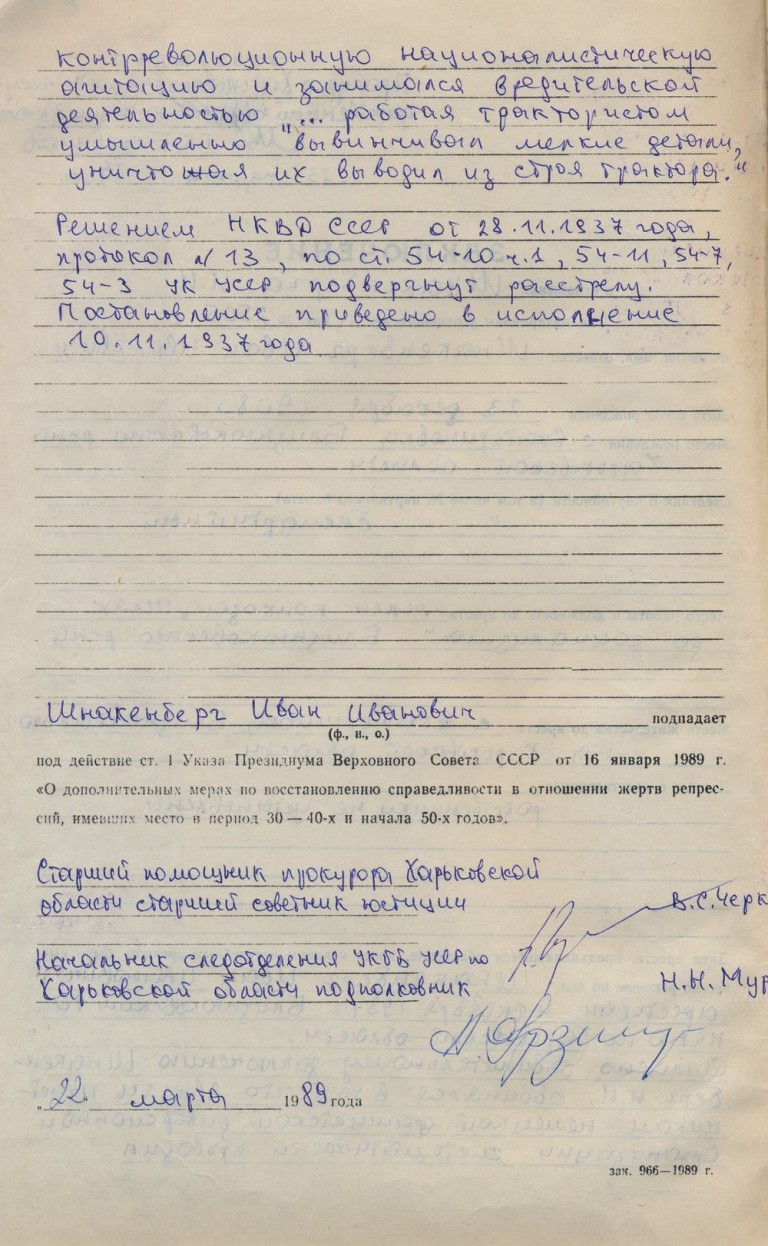 контрреволюционную националистическую
агитацию и занимался вредительской
деятельностью "... работая трактористом
умышленно "вывинчивал мелкие детали,
уничтожая их выводил из строя трактора."
Решением НКВД СССР от 28.11.1937 года,
протокол № 13, по ст. 54-10 ч.1, 54-11, 54-7,
54-3 УК УССР подвергнут расстрелу.
Постановление приведено в исполнение
10.11.1937 года
Шнакенберг Иван Иванович подпадает
(ф., и., о.)
под действие ст. 1 Указа Президиума Верховного Совета СССР от 16 января 1989 г.
«О дополнительных мерах по восстановлению справедливости в отношении жертв репрес-
сий, имевших место в период 30—40-х и начала 50-х годов».
Старший помощник прокурора Харьковской
области старший советник юстиции В.С.Черк
Начальник следотделения УКГБ УССР по
Харьковской области подполковник Н.Н.Мур
„22" марта 1989 года
зак. 966—1989 г.